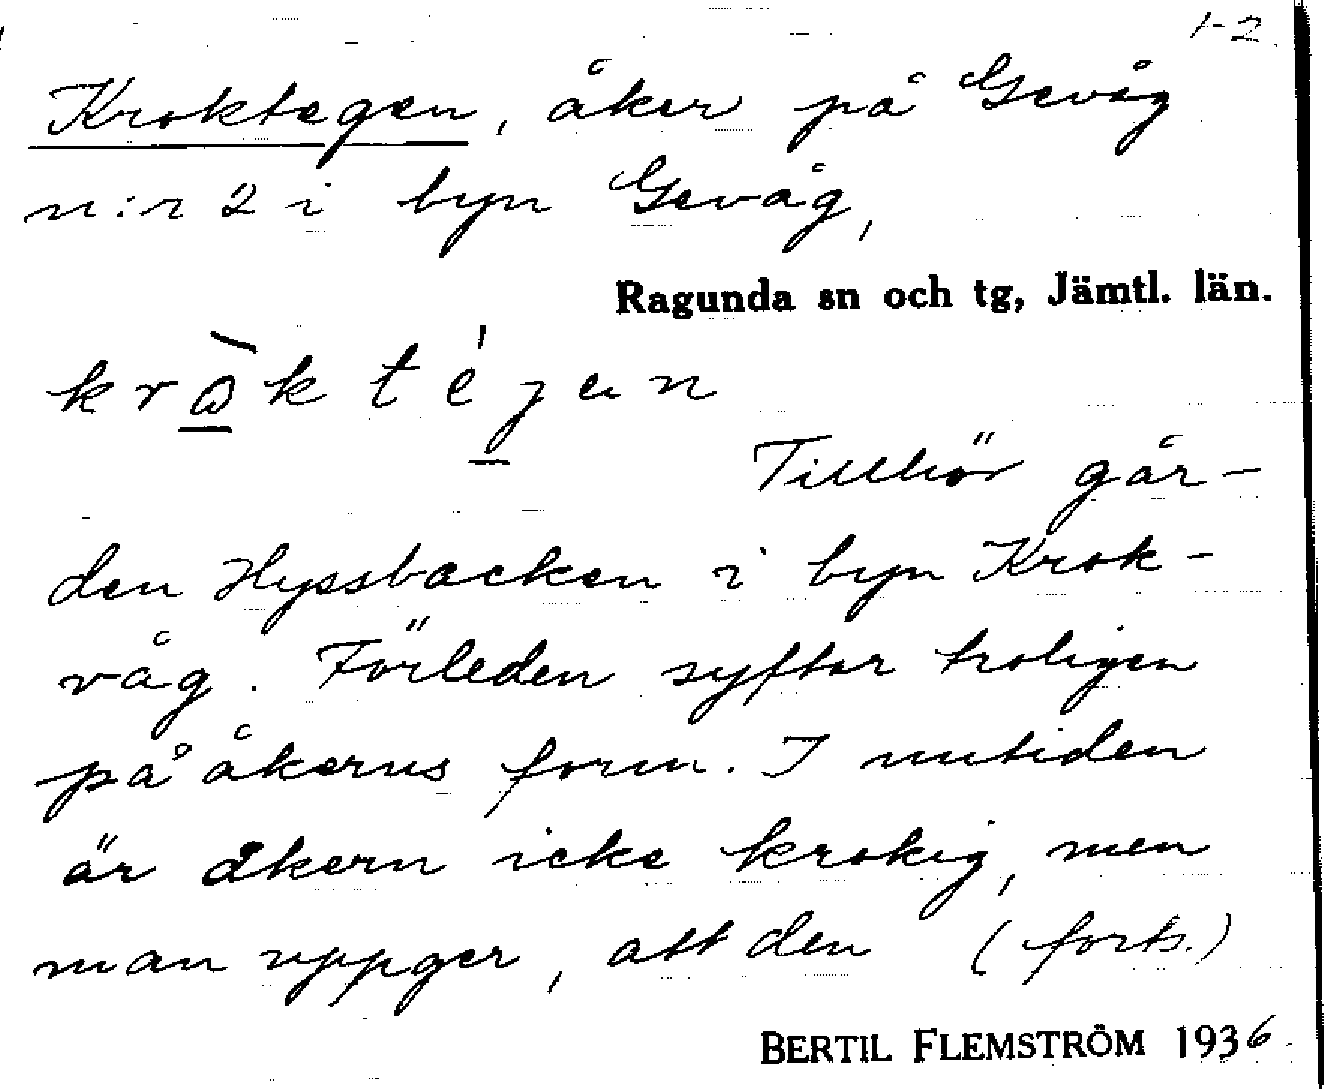 1-2
Kroktegen, åker på Gevåg
n:r 2 i byn Gevåg,
Ragunda sn och tg, Jämtl. län.
Tillhör går-
den Hyssbacken i byn Krok-
våg. Förleden syftar troligen
på åkerns form. I nutiden
är åkern icke krokig, men
man uppger, att den (forts.)
BERTIL FLEMSTRÖM 1936